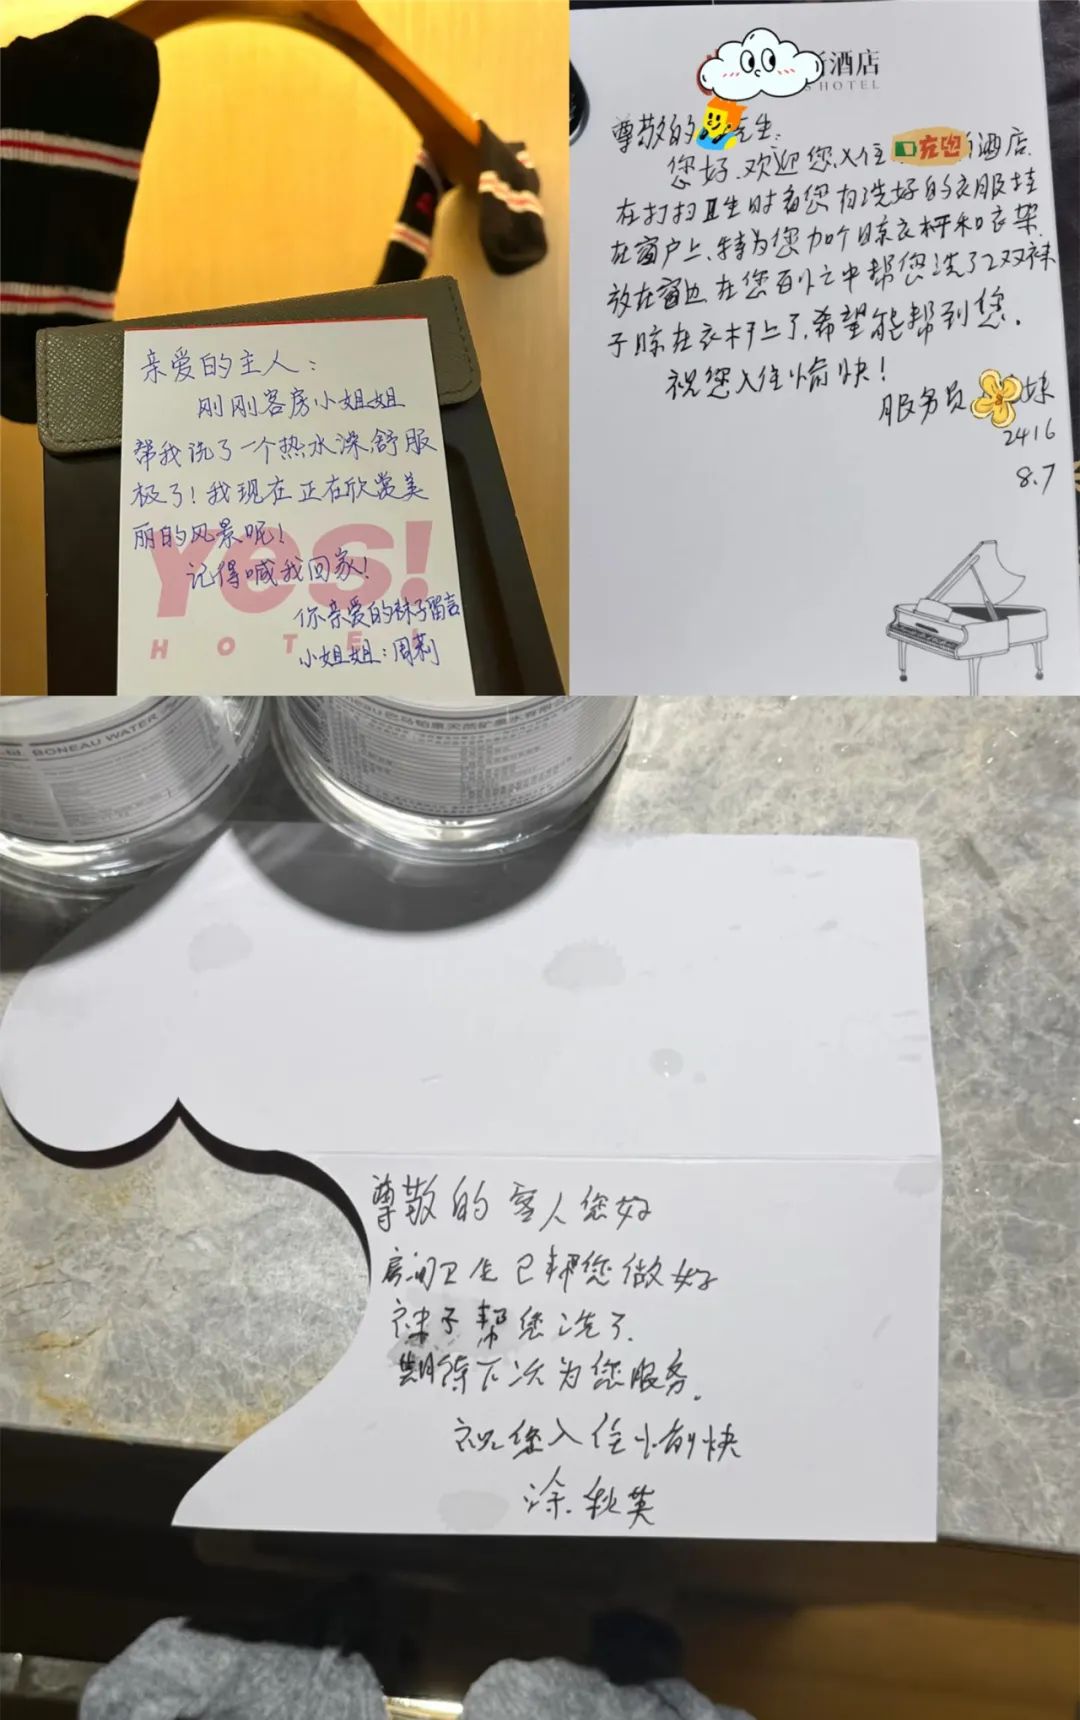 亲爱的主人：
刚刚客房小姐姐
帮我洗了一个热水澡,舒服
极了！我现在正在欣赏美
丽的风景呢！
记得喊我回家！
你亲爱的袜子留言
小姐姐：周莉
Yes!
HOTEL
酒店
HOTEL
尊敬的 先生:
您好.欢迎您入住 酒店.
在打扫卫生时看您有洗好的衣服挂
在窗户上,特为您加个晾衣杆和衣架.
放在窗边在您百忙之中帮您洗了2双袜
子晾在衣杆上了,希望能帮到您.
祝您入住愉快!
服务员 妹
2416
8.7
充电
BONEAU WATER
巴马铂泉天然矿泉水有限公
尊敬的客人您好
房间卫生已帮您做好
袜子帮您洗了.
期待下次为您服务.
祝您入住愉快
涂秋英